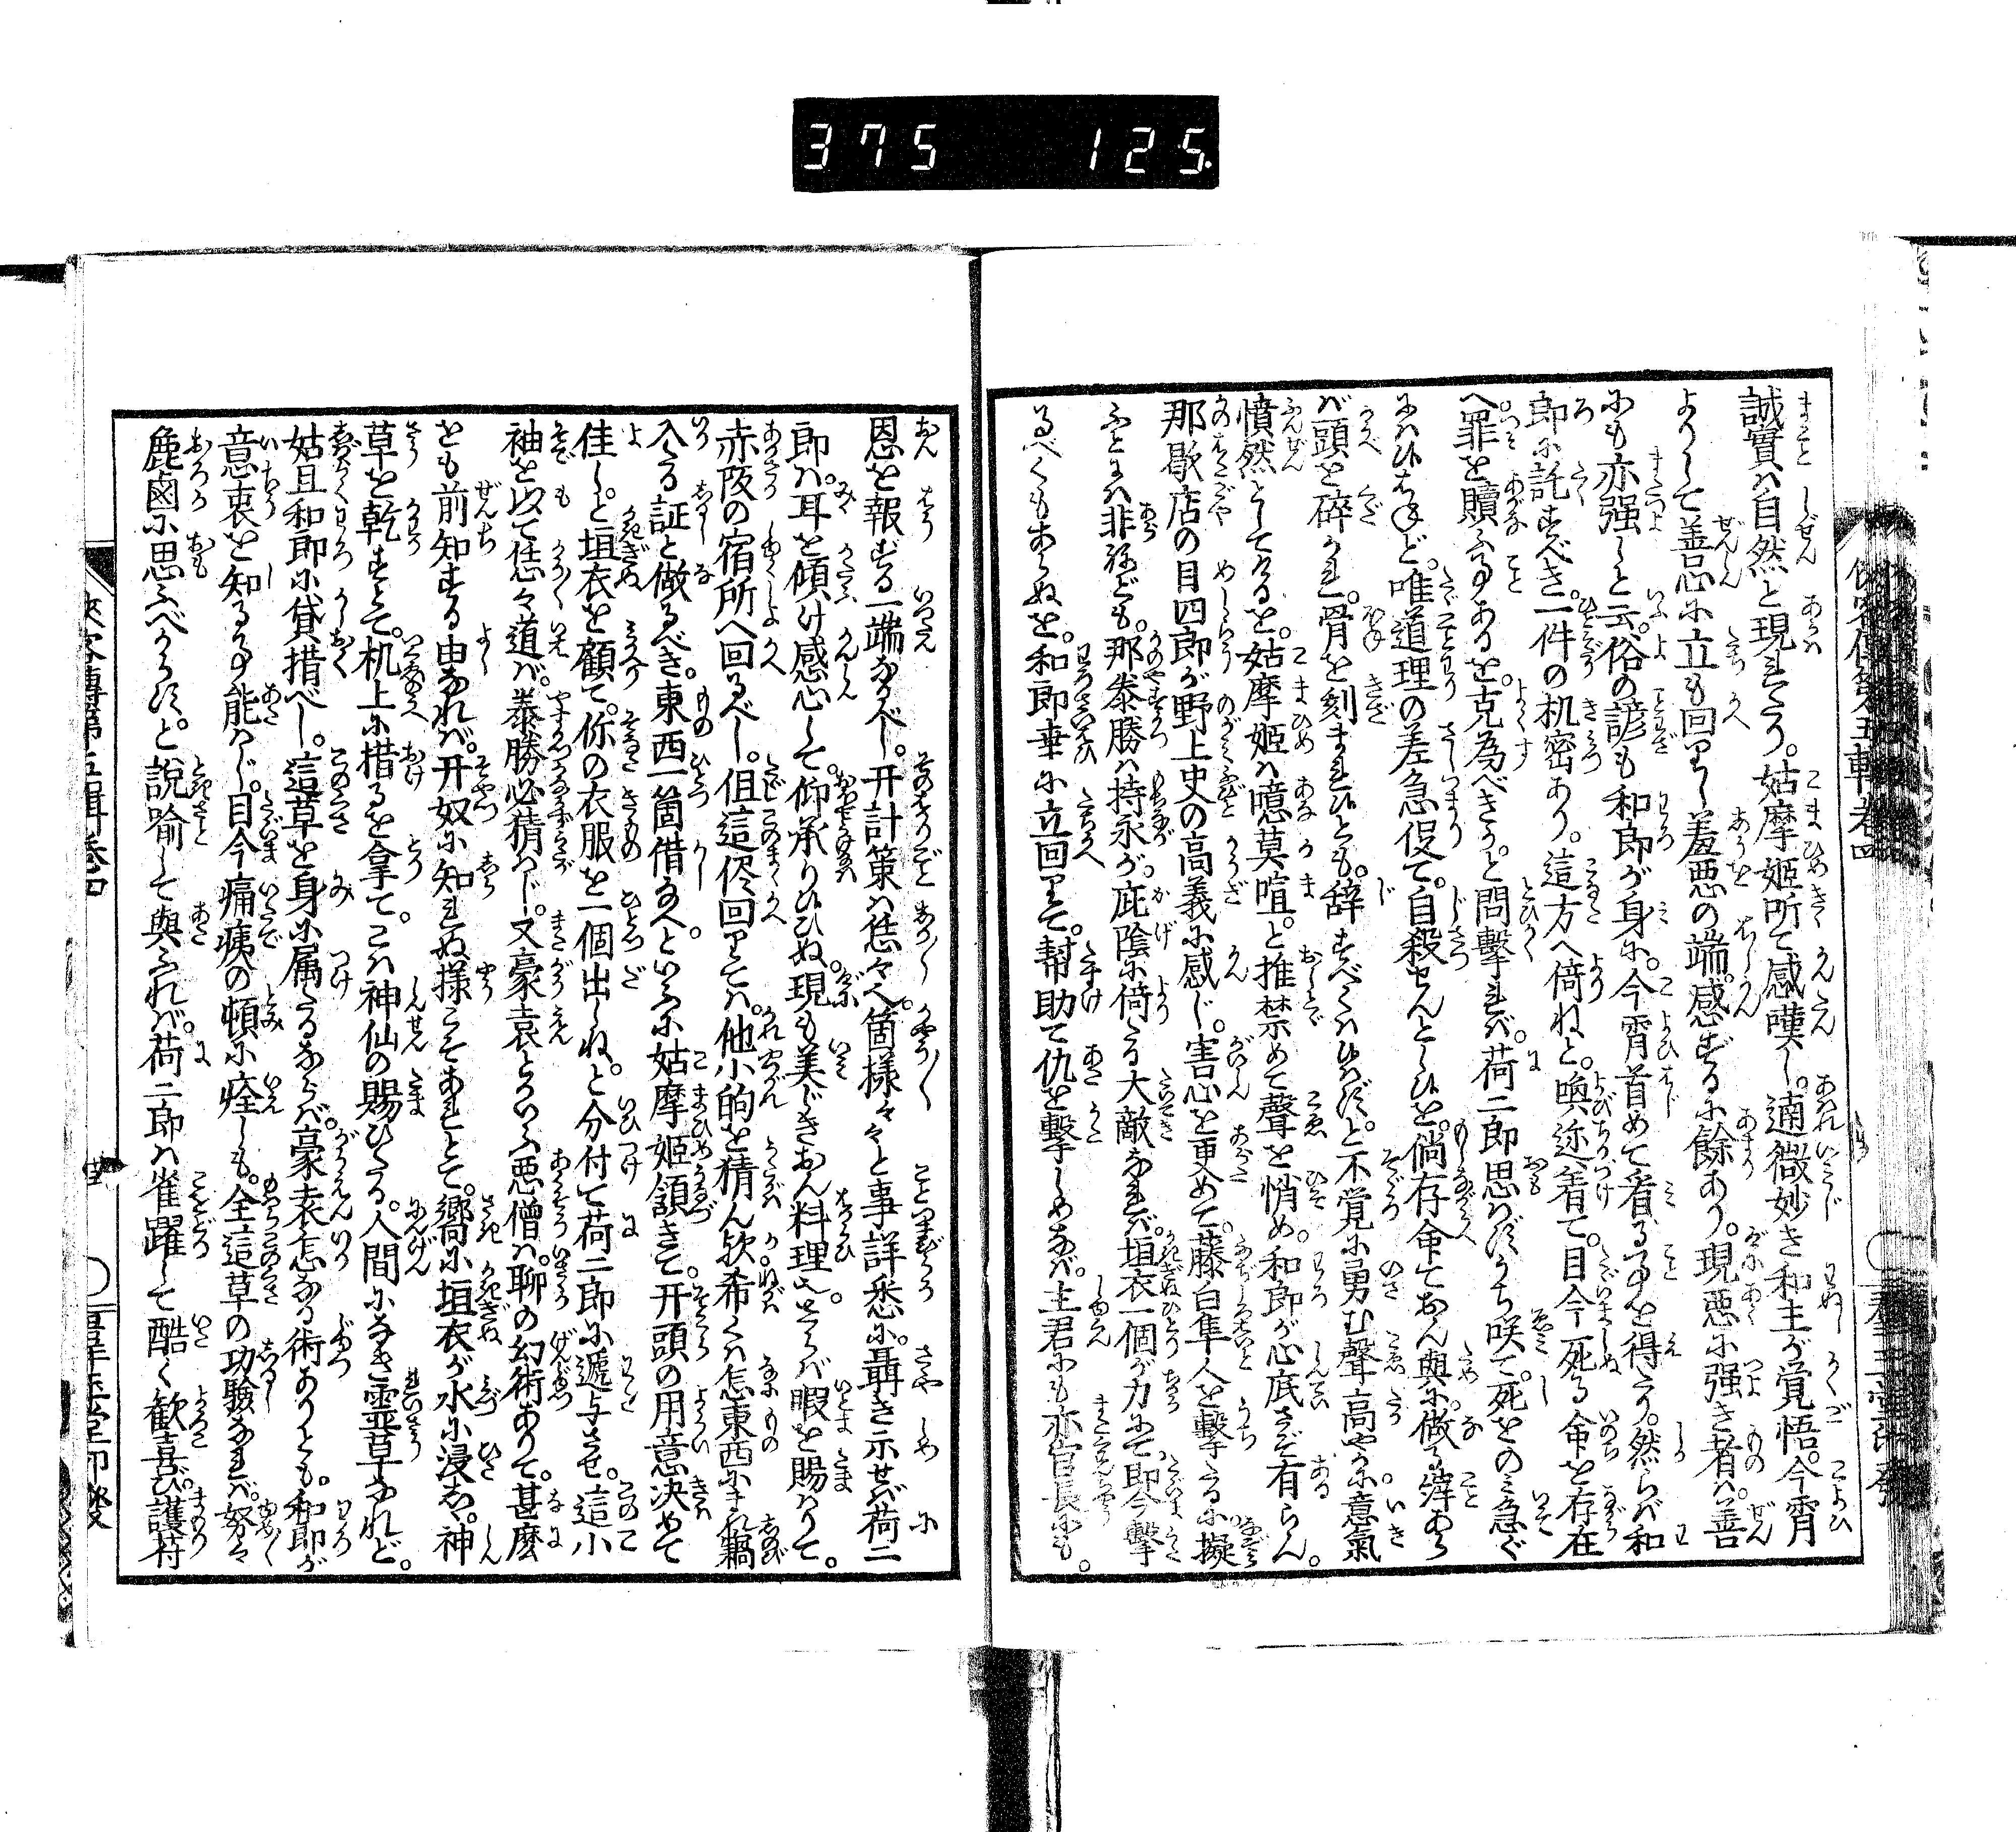 375 125
誠實ハ自然と現れたり。姑摩姫所て感嘆し。遖微妙き和主が覚悟。今霄
よりして善惡に立も回りし羞悪の端。感ずるに餘あり。現悪に强き者ハ。善
にも亦强しと云。俗の諺も和郎が身に。今宵首めて看る事を得たり。然らバ和
郎に託すべき。一件の机密あり。這方へ倚ねと。喚迩着て。目今死る命を存在
へ罪を贖ふ事あるを。克為べきか。と問撃れバ。荷二郎思ハずうち咲て。死をのミ急ぐ
にハひはねど。唯道理の差急促て。自殺せんとしひを。倘存命ておん與に。做る縡あら
バ頭を碎かれ。骨を刻まれひとも。辞すべくハひハず。と不覚に勇む聲高やかに意氣
憤然としてけるを。姑摩姫ハ噫莫喧。と推禁めて聲を悄め。和郎が心底さぞ有らん。
那歇店の目四郎が野上史の高義に感じ。害心を更めて。藤白隼人を撃たるに擬
ふとにハ非ねども。那泰勝ハ持永が。庇陰に倚たる大敵なれバ。垣衣一個が力にて。即今撃
るべくもあらぬを。和郎幸に立回りて。幇助て仇を撃しめなバ。主君にも亦官長にも。
恩を報ずる一端なるべし。开計策ハ恁々へ。箇様々々と事詳悉に。聶き示せバ荷二
郎ハ。耳を傾け感心して。仰承りひひぬ。現も美じきおん料理。さらバ暇を賜ハりて。
赤阪の宿所へ回るべし。但這侭回りてハ。他小的を猜ん欤。希くハ怎東西にまれ。竊
入たる証と做るべき。東西一箇借なへ。といふに姑摩姫頷きて。开頭の用意决めて
佳し。と垣衣を顧て。你の衣服を一個出しね。と分付て荷二郎に遞与させ。這小
袖を以て恁々道バ。泰勝必猜ハじ。又豪袁とかいふ悪僧ハ。聊の幻術ありて。甚麽
をも前知する由なれバ。开奴に知れぬ様こそあれとて。嚮に垣衣が水に浸しゝ。神
草を乾すとて。机上に措るを拿て。こハ神仙の賜ひたる。人間になき霊草なれど。
姑且和郎に貸措べし。這草を身に属たるならバ。豪袁怎なる術ありとも。和郎が
意衷を知る事能ハじ。目今痛痍の頓に痊しも。全這草の功驗なれバ。努々
麁鹵に思ふべからず。と說喩して與ふれバ。荷二郎ハ雀躍して酷く歓喜び。護符